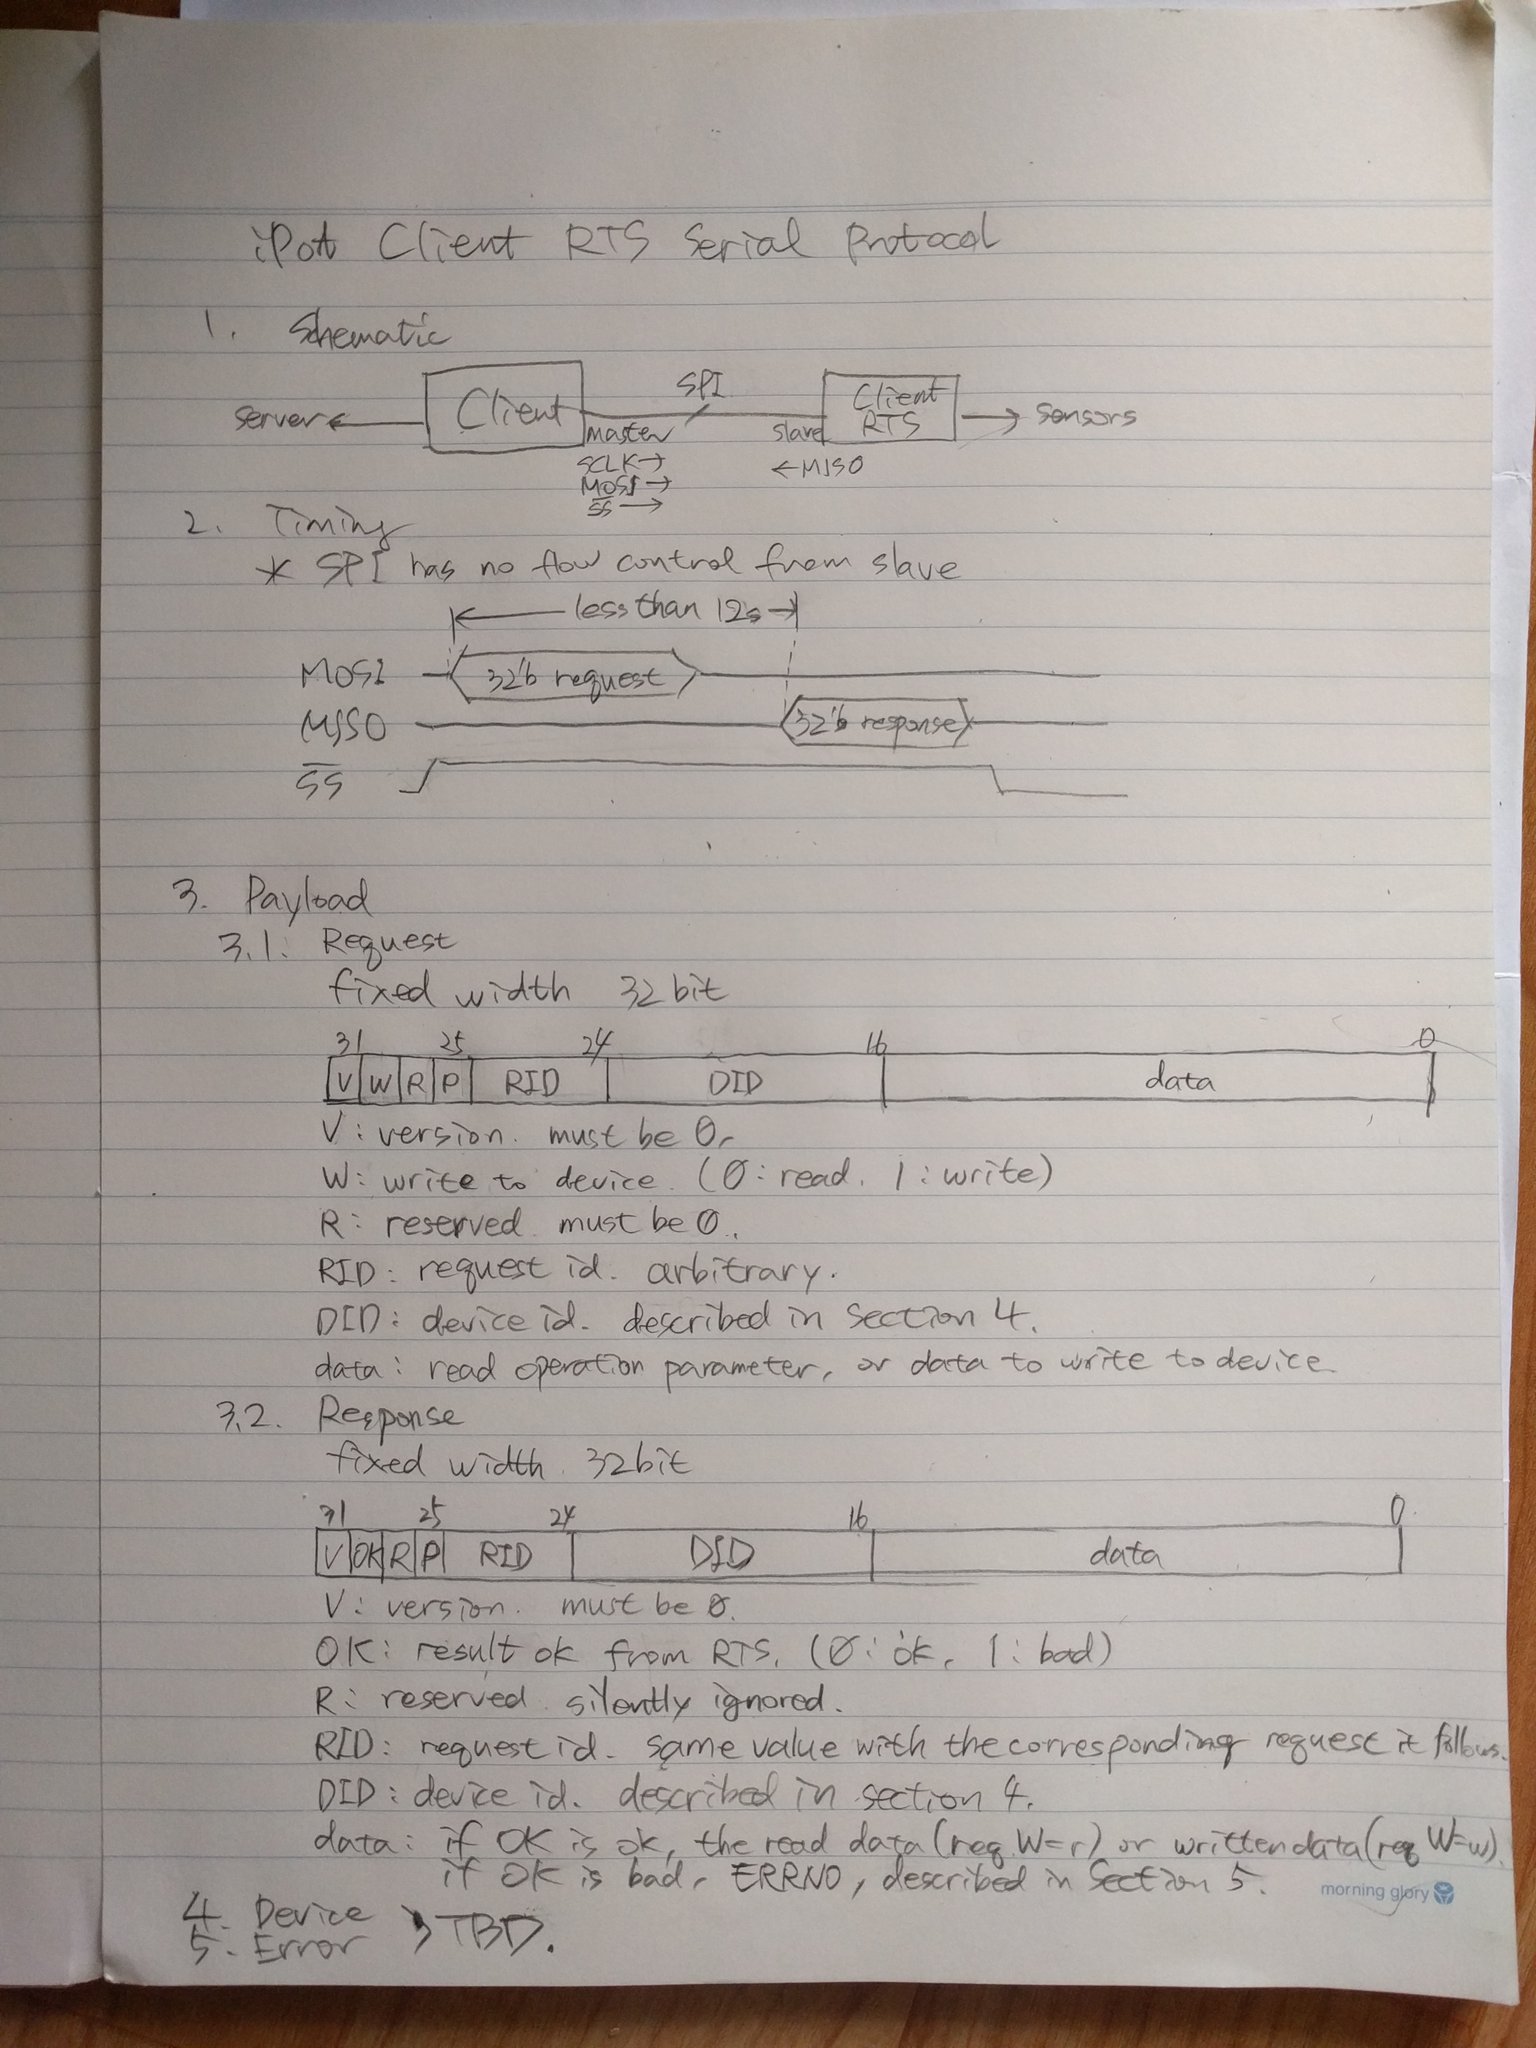 iPot Client RTS Serial Protocol
1. Schematic
server Client SPI Client RTS sensors
master slave
SCLK→ ←MISO
MOSI→
SS→
2. Timing
* SPI has no flow control from slave
less than 12s
MOSI 32'b request
MISO 32'b response
SS
3. Payload
3.1. Request
fixed width 32bit
31 25 24 16 0
V W R P RID DID data
V: version. must be 0.
W: write to device. (0: read. 1: write)
R: reserved. must be 0.
RID: request id. arbitrary.
DID: device id. described in section 4.
data: read operation parameter, or data to write to device
3.2. Response
fixed width. 32bit
31 25 24 16 0
V OK R P RID DID data
V: version. must be 0.
OK: result ok from RTS. (0: ok, 1: bad)
R: reserved. silently ignored.
RID: request id. same value with the corresponding request it follows.
DID: device id. described in section 4.
data: if OK is ok, the read data (req W=r) or written data (req W=w).
if OK is bad, ERRNO, described in Section 5.
morning glory
4. Device
5. Error > TBD.